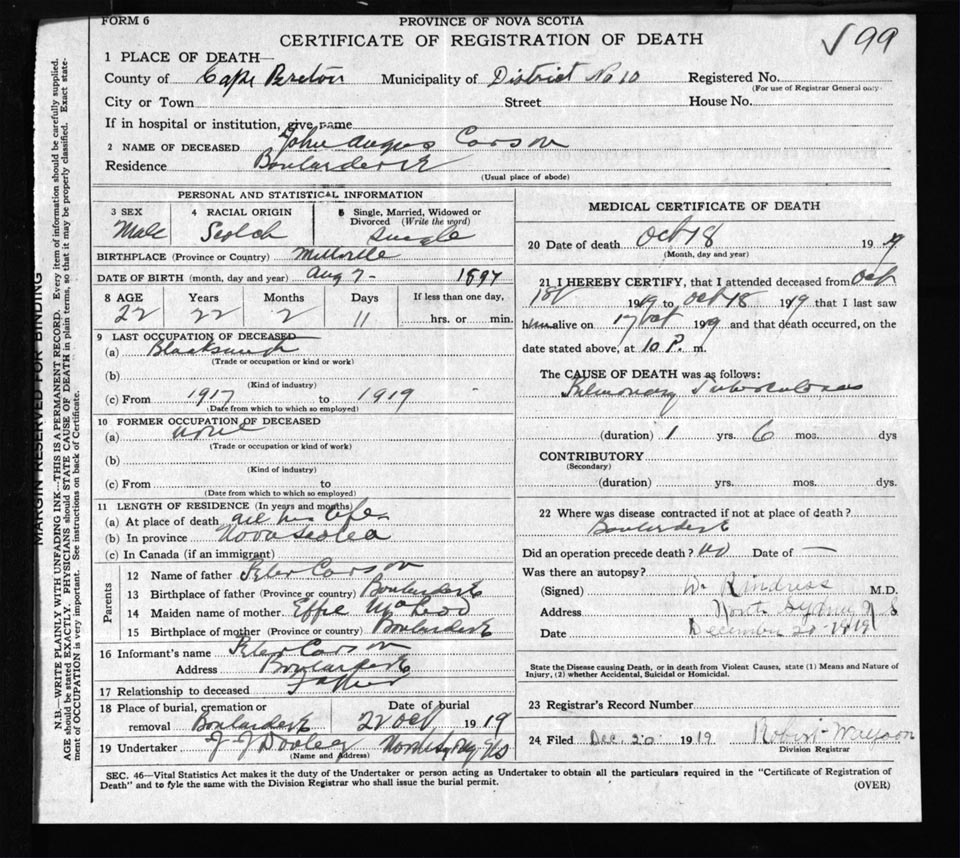 FORM 6
PROVINCE OF NOVA SCOTIA
CERTIFICATE OF REGISTRATION OF DEATH
√99
1 PLACE OF DEATH—
County of Cape Breton Municipality of District No 10 Registered No.
(For use of Registrar General only.
City or Town Street House No.
If in hospital or institution, give name
2 NAME OF DECEASED John Angus Carson
Residence Boularderie
(Usual place of abode)
PERSONAL AND STATISTICAL INFORMATION
3 SEX 4 RACIAL ORIGIN 5 Single, Married, Widowed or Divorced (Write the word)
Male Scotch Single
BIRTHPLACE (Province or Country) Millville
DATE OF BIRTH (month, day and year) Aug 7- 1897
8 AGE Years Months Days If less than one day,
22 22 2 11 hrs. or min.
9 LAST OCCUPATION OF DECEASED
(a) Blacksmith
(Trade or occupation or kind or work)
(b)
(Kind of industry)
(c) From 1917 to 1919
(Date from which to which so employed)
10 FORMER OCCUPATION OF DECEASED
(a) none
(Trade or occupation or kind of work)
(b)
(Kind of industry)
(c) From to
(Date from which to which so employed)
11 LENGTH OF RESIDENCE (In years and months)
(a) At place of death all his life
(b) In province Nova Scotia
(c) In Canada (if an immigrant)
Parents
12 Name of father Peter Carson
13 Birthplace of father (Province or country) Boularderie
14 Maiden name of mother Effie McLeod
15 Birthplace of mother (Province or country) Boularderie
16 Informant's name Peter Carson
Address Boularderie
17 Relationship to deceased Father
18 Place of burial, cremation or removal Boularderie
Date of burial 22 Oct 1919
19 Undertaker J J Dooley North Sydney NS
(Name and Address)
MEDICAL CERTIFICATE OF DEATH
20 Date of death Oct 18 1919
(Month, day and year)
21 I HEREBY CERTIFY, that I attended deceased from Oct
1919 to Oct 18 1919 that I last saw
him alive on 17 Oct 1919 and that death occurred, on the
date stated above, at 10 P. m.
The CAUSE OF DEATH was as follows:
Pulmonary Tuberculosis
(duration) 1 yrs. 6 mos. dys
CONTRIBUTORY
(Secondary)
(duration) yrs. mos. dys.
22 Where was disease contracted if not at place of death?
Boularderie
Did an operation precede death? No Date of —
Was there an autopsy?
(Signed) M.D.
Address North Sydney N S
Date December 20-1919
State the Disease causing Death, or in death from Violent Causes, state (1) Means and Nature of
Injury, (2) whether Accidental, Suicidal or Homicidal.
23 Registrar's Record Number
24 Filed Dec. 20 1919 Robert
Division Registrar
SEC. 46—Vital Statistics Act makes it the duty of the Undertaker or person acting as Undertaker to obtain all the particulars required in the "Certificate of Registration of
Death" and to fyle the same with the Division Registrar who shall issue the burial permit.
(OVER)
MARGIN RESERVED FOR BINDING
N.B.—WRITE PLAINLY WITH UNFADING INK—THIS IS A PERMANENT RECORD. Every item of information should be carefully supplied.
AGE should be stated EXACTLY. PHYSICIANS should STATE CAUSE OF DEATH in plain terms, so that it may be properly classified. Exact state-
ment of OCCUPATION is very important. See instructions on back of Certificate.